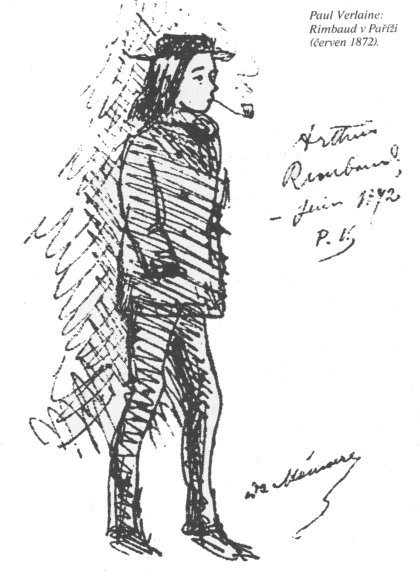 Paul Verlaine:
Rimbaud v Paříži
(červen 1872).
Arthur
Rimbaud,
– Juin 1872
P. V.